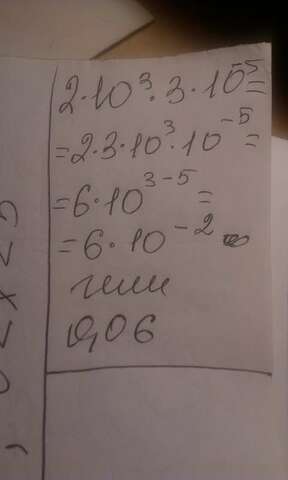 2·10³·3·10⁻⁵=
=2·3·10³·10⁻⁵=
=6·10³⁻⁵=
=6·10⁻²
или
0,06